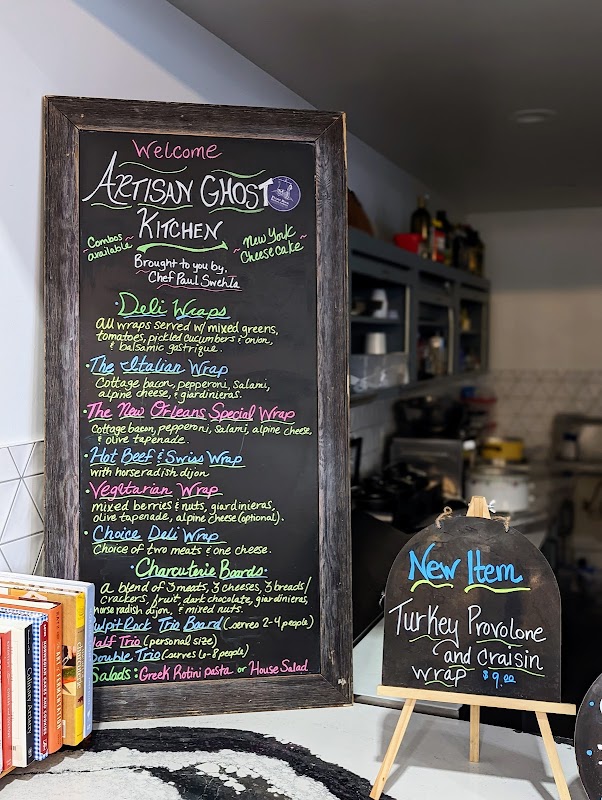 Welcome
ARTISAN GHOST
KITCHEN
Combos
available
New York
Cheesecake
Brought to you by,
Chef Paul Swehla
Deli Wraps
All wraps served w/ mixed greens,
tomatoes, pickled cucumbers & onion,
& balsamic gastrique.
• The Italian Wrap
Cottage bacon, pepperoni, salami,
alpine cheese, & giardinieras.
• The New Orleans Special Wrap
Cottage bacon, pepperoni, salami, alpine cheese,
& olive tapenade.
• Hot Beef & Swiss Wrap
with horseradish dijon
• Vegitarian Wrap
mixed berries & nuts, giardinieras,
olive tapenade, alpine cheese (optional).
• Choice Deli Wrap
Choice of two meats & one cheese.
• Charcuterie Boards •
a blend of 3 meats, 3 cheeses, 3 breads/
crackers, fruit, dark chocolate, giardinieras,
horseradish dijon, & mixed nuts.
Pulpit Rock Trio Board (serves 2-4 people)
Half Trio (personal size)
Double Trio (serves 6-8 people)
Salads: Greek Rotini pasta or House Salad
New Item
Turkey Provolone
and Craisin
wrap $9.00
Culinary Artistry